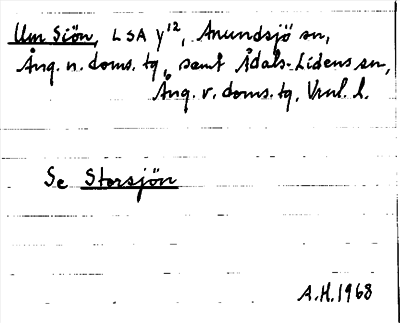 Um Siön, LSA y12, Anundsjö sn,
Ång. n. doms. tg, samt Ådals-Lidens sn,
Ång. v. doms. tg, Vnl. l.
Se Storsjön
A.H. 1968